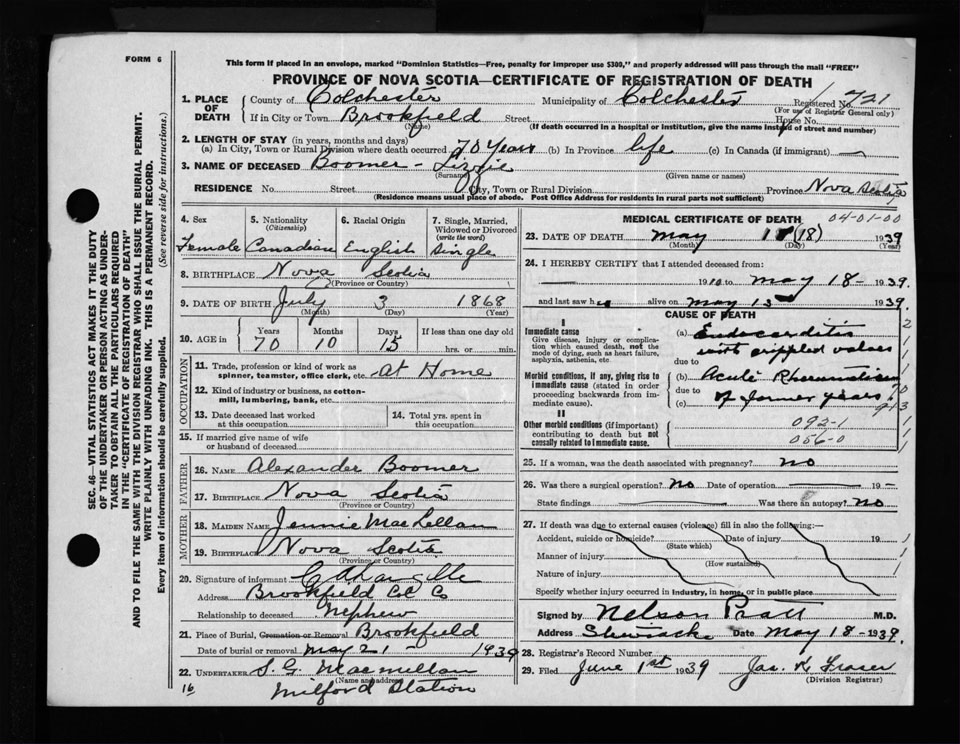 FORM 6
This form if placed in an envelope, marked "Dominion Statistics—Free, penalty for improper use $300," and properly addressed will pass through the mail "FREE"
PROVINCE OF NOVA SCOTIA—CERTIFICATE OF REGISTRATION OF DEATH
1. PLACE OF DEATH County of Colchester Municipality of Colchester Registered No. 721
(For use of Registrar General only)
If in City or Town Brookfield Street House No.
(Name) (If death occurred in a hospital or institution, give the name instead of street and number)
2. LENGTH OF STAY (in years, months and days)
(a) In City, Town or Rural Division where death occurred 70 years (b) In Province life (c) In Canada (if immigrant) —
3. NAME OF DECEASED Boomer - Lizzie
(Surname) (Given name or names)
RESIDENCE No. Street City, Town or Rural Division Province Nova Scotia
(Residence means usual place of abode. Post Office Address for residents in rural parts not sufficient)
4. Sex 5. Nationality 6. Racial Origin 7. Single, Married, Widowed or Divorced
(Citizenship) (write the word)
Female Canadian English Single
8. BIRTHPLACE Nova Scotia
(Province or Country)
9. DATE OF BIRTH July 3 1868
(Month) (Day) (Year)
10. AGE in Years Months Days If less than one day old
70 10 15 hrs. or min.
OCCUPATION
11. Trade, profession or kind of work as spinner, teamster, office clerk, etc. At Home
12. Kind of industry or business, as cotton-mill, lumbering, bank, etc.
13. Date deceased last worked at this occupation
14. Total yrs. spent in this occupation
15. If married give name of wife or husband of deceased
FATHER
16. NAME Alexander Boomer
17. BIRTHPLACE Nova Scotia
(Province or Country)
MOTHER
18. MAIDEN NAME Jennie MacLellan
19. BIRTHPLACE Nova Scotia
(Province or Country)
20. Signature of informant
Address Brookfield Col Co
Relationship to deceased Nephew
21. Place of Burial, Cremation or Removal Brookfield
Date of burial or removal May 21 - 1939
22. UNDERTAKER S. G. Macmillan
(Name and address)
Milford Station
16
MEDICAL CERTIFICATE OF DEATH 04-01-00
23. DATE OF DEATH May (18) 1939
(Month) (Day) (Year)
24. I HEREBY CERTIFY that I attended deceased from:
19 to May 18 - 1939.
and last saw h alive on May 15 1939.
CAUSE OF DEATH
I
Immediate cause
Give disease, injury or complication which caused death, not the mode of dying, such as heart failure, asphyxia, asthenia, etc.
(a) Endocarditis
with crippled valves
due to
Morbid conditions, if any, giving rise to immediate cause (stated in order proceeding backwards from immediate cause).
(b) Acute Rheumatism
due to
(c) of former years
II
Other morbid conditions (if important) contributing to death but not causally related to immediate cause.
092-1
056-0
25. If a woman, was the death associated with pregnancy? no
26. Was there a surgical operation? no Date of operation 19 -
State findings Was there an autopsy? no
27. If death was due to external causes (violence) fill in also the following:—
Accident, suicide or homicide? Date of injury 19
(State which)
Manner of injury
(How sustained)
Nature of injury
Specify whether injury occurred in industry, in home, or in public place
Signed by Nelson Pratt M.D.
Address Stewiacke Date May 18 - 1939.
28. Registrar's Record Number
29. Filed June 1st 1939 Jas. K Fraser
(Division Registrar)
SEC. 46—VITAL STATISTICS ACT MAKES IT THE DUTY
OF THE UNDERTAKER OR PERSON ACTING AS UNDER-
TAKER TO OBTAIN ALL THE PARTICULARS REQUIRED
IN THE "CERTIFICATE OF REGISTRATION OF DEATH"
AND TO FILE THE SAME WITH THE DIVISION REGISTRAR WHO SHALL ISSUE THE BURIAL PERMIT.
WRITE PLAINLY WITH UNFADING INK. THIS IS A PERMANENT RECORD.
Every item of information should be carefully supplied. (See reverse side for instructions.)